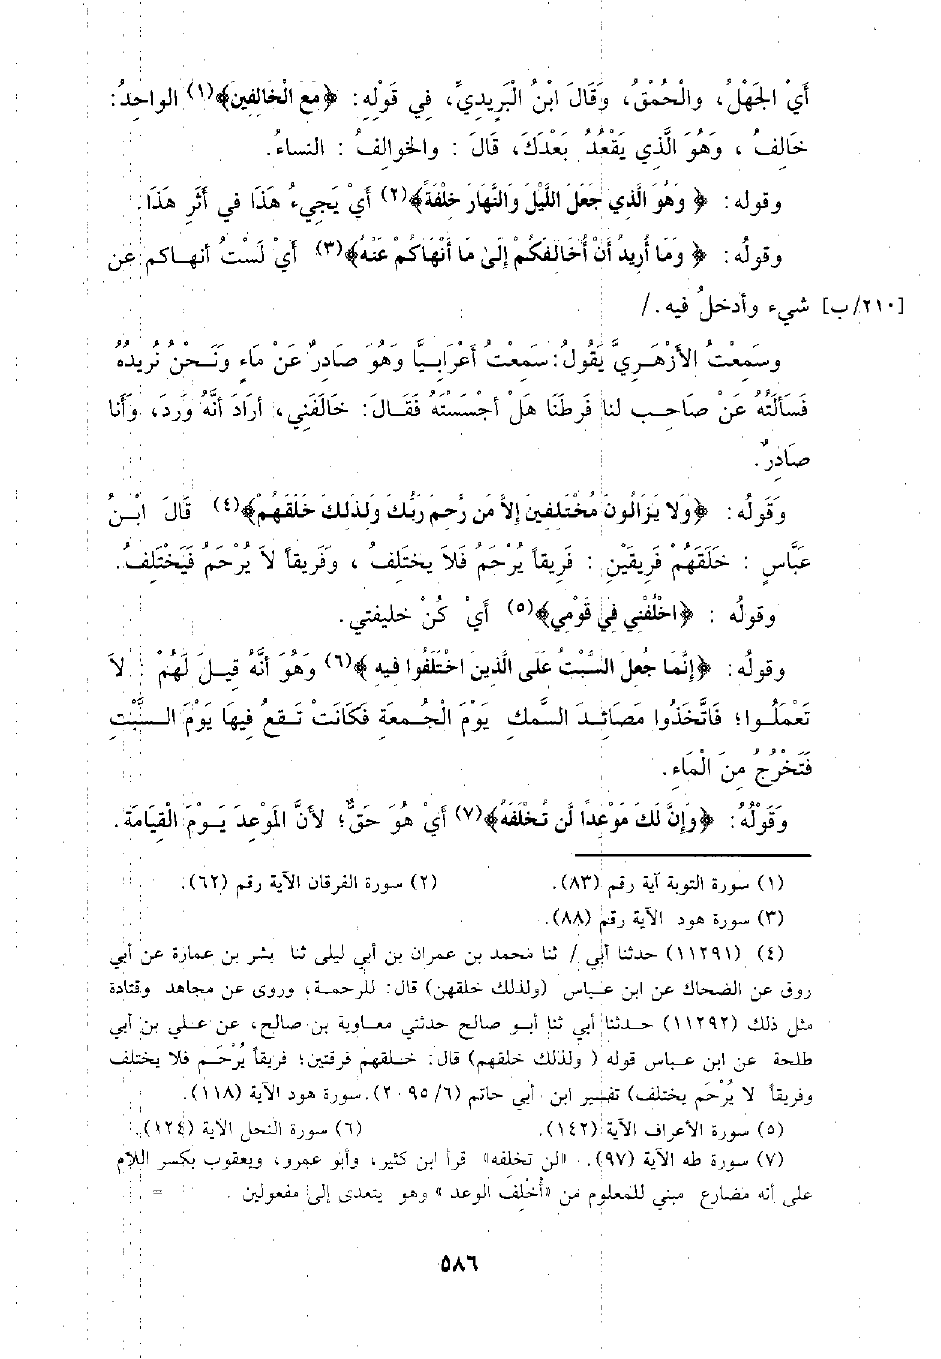 أَيْ الجَهْلُ، والْحُمْقُ، وَقَالَ ابْنُ الْيَزِيدِيِّ، فِي قَوْلِهِ: ﴿مَعَ الْخَالِفِينَ﴾(١) الواحِدُ:
خَالِفُ ، وَهُوَ الَّذِي يَقْعُدُ بَعْدَكَ، قَالَ : والخوالفُ : النساءُ.
وقوله: ﴿ وَهُوَ الَّذِي جَعَلَ اللَّيْلَ وَالنَّهَارَ خِلْفَةً﴾(٢) أَيْ يَجِيءُ هَذَا في أَثَرِ هَذَا.
وقولُه: ﴿ وَمَا أُرِيدُ أَنْ أُخَالِفَكُمْ إِلَىٰ مَا أَنْهَاكُمْ عَنْهُ﴾(٣) أَيْ لَسْتُ أنهـاكم عن
[٢١٠/ب] شيء وأدخلُ فيه ./
وسَمِعْتُ الأَزْهَـرِيَّ يَقُولُ: سَمِعْتُ أَعْرَابِـيًّا وَهُوَ صَادِرٌ عَنْ مَاءٍ وَنَـحْنُ نُرِيدُهُ
فَسَأَلْتُهُ عَنْ صَاحِـبٍ لنا فَرطَنَا هَلْ أَحْسَسْتَهُ فَقَـالَ: خَالَفَنِي، أَرَادَ أَنَّهُ وَرَدَ، وَأَنا
صَادِرٌ.
وَقَولُه: ﴿وَلا يَزَالُونَ مُخْتَلِفِينَ إِلاَّ مَن رَّحِمَ رَبُّكَ وَلِذَلِكَ خَلَقَهُمْ﴾(٤) قَالَ ابْـنُ
عَبَّاسٍ : خَلَقَهُمْ فَرِيقَيْنِ : فَرِيقاً يُرْحَمُ فَلاَ يختَلِفُ ، وَفَرِيقاً لاَ يُرْحَمُ فَيَخْتَلِفُ.
وقولُه : ﴿اخْلُفْنِي فِي قَوْمِي﴾(٥) أَيْ كُنْ خليفتي.
وقولُه: ﴿إِنَّمَا جُعِلَ السَّبْتُ عَلَى الَّذِينَ اخْتَلَفُوا فِيهِ ﴾(٦) وَهُوَ أَنَّهُ قِيـلَ لَهُمْ : لاَ
تَعْمَلُـوا؛ فَاتَّخَذُوا مَصَائِـدَ السَّمكِ يَوْمَ الْجُـمعَةِ فَكَانَتْ تَـقعُ فِيهَا يَوْمَ السَّبْتِ
فَتَخْرُجُ مِنَ الْمَاءِ.
وَقَوْلُهُ: ﴿وَإِنَّ لَكَ مَوْعِداً لَن تُخْلَفَهُ﴾(٧) أَيْ هُوَ حَقٌّ؛ لأَنَّ المَوْعِدَ يَـوْمَ الْقِيَامَةِ.
(١) سورة التوبة آية رقم (٨٣). (٢) سورة الفرقان الآية رقم (٦٢).
(٣) سورة هود الآية رقم (٨٨).
(٤) (١١٢٩١) حدثنا أبي / ثنا محمد بن عمران بن أبي ليلى ثنا بشر بن عمارة عن أبي
روق عن الضحاك عن ابن عـباس (ولذلك خلقهن) قال: للرحمـة، وروى عن مجاهد وقتادة
مثل ذلك (١١٢٩٢) حـدثنا أبي ثنا أبـو صالح حدثني معـاوية بن صالح، عن عـلي بن أبي
طلحة عن ابن عـباس قوله ( ولذلك خلقهم) قال: خـلقهم فرقتين؛ فريقاً يُرْحَـم فلا يختلف
وفريقاً لا يُرْحَم يختلف) تفسير ابن أبي حاتم (٦/ ٢٠٩٥).سورة هود الآية (١١٨).
(٥) سورة الأعراف الآية (١٤٢). (٦) سورة النحل الآية (١٢٤).
(٧) سورة طه الآية (٩٧). «لن تخلفه» قرأ ابن كثير، وأبو عمرو، ويعقوب بكسر اللام
على أنه مضارع مبني للمعلوم من «أُخْلِف الوعد » وهو يتعدى إلى مفعولين . =
٥٨٦